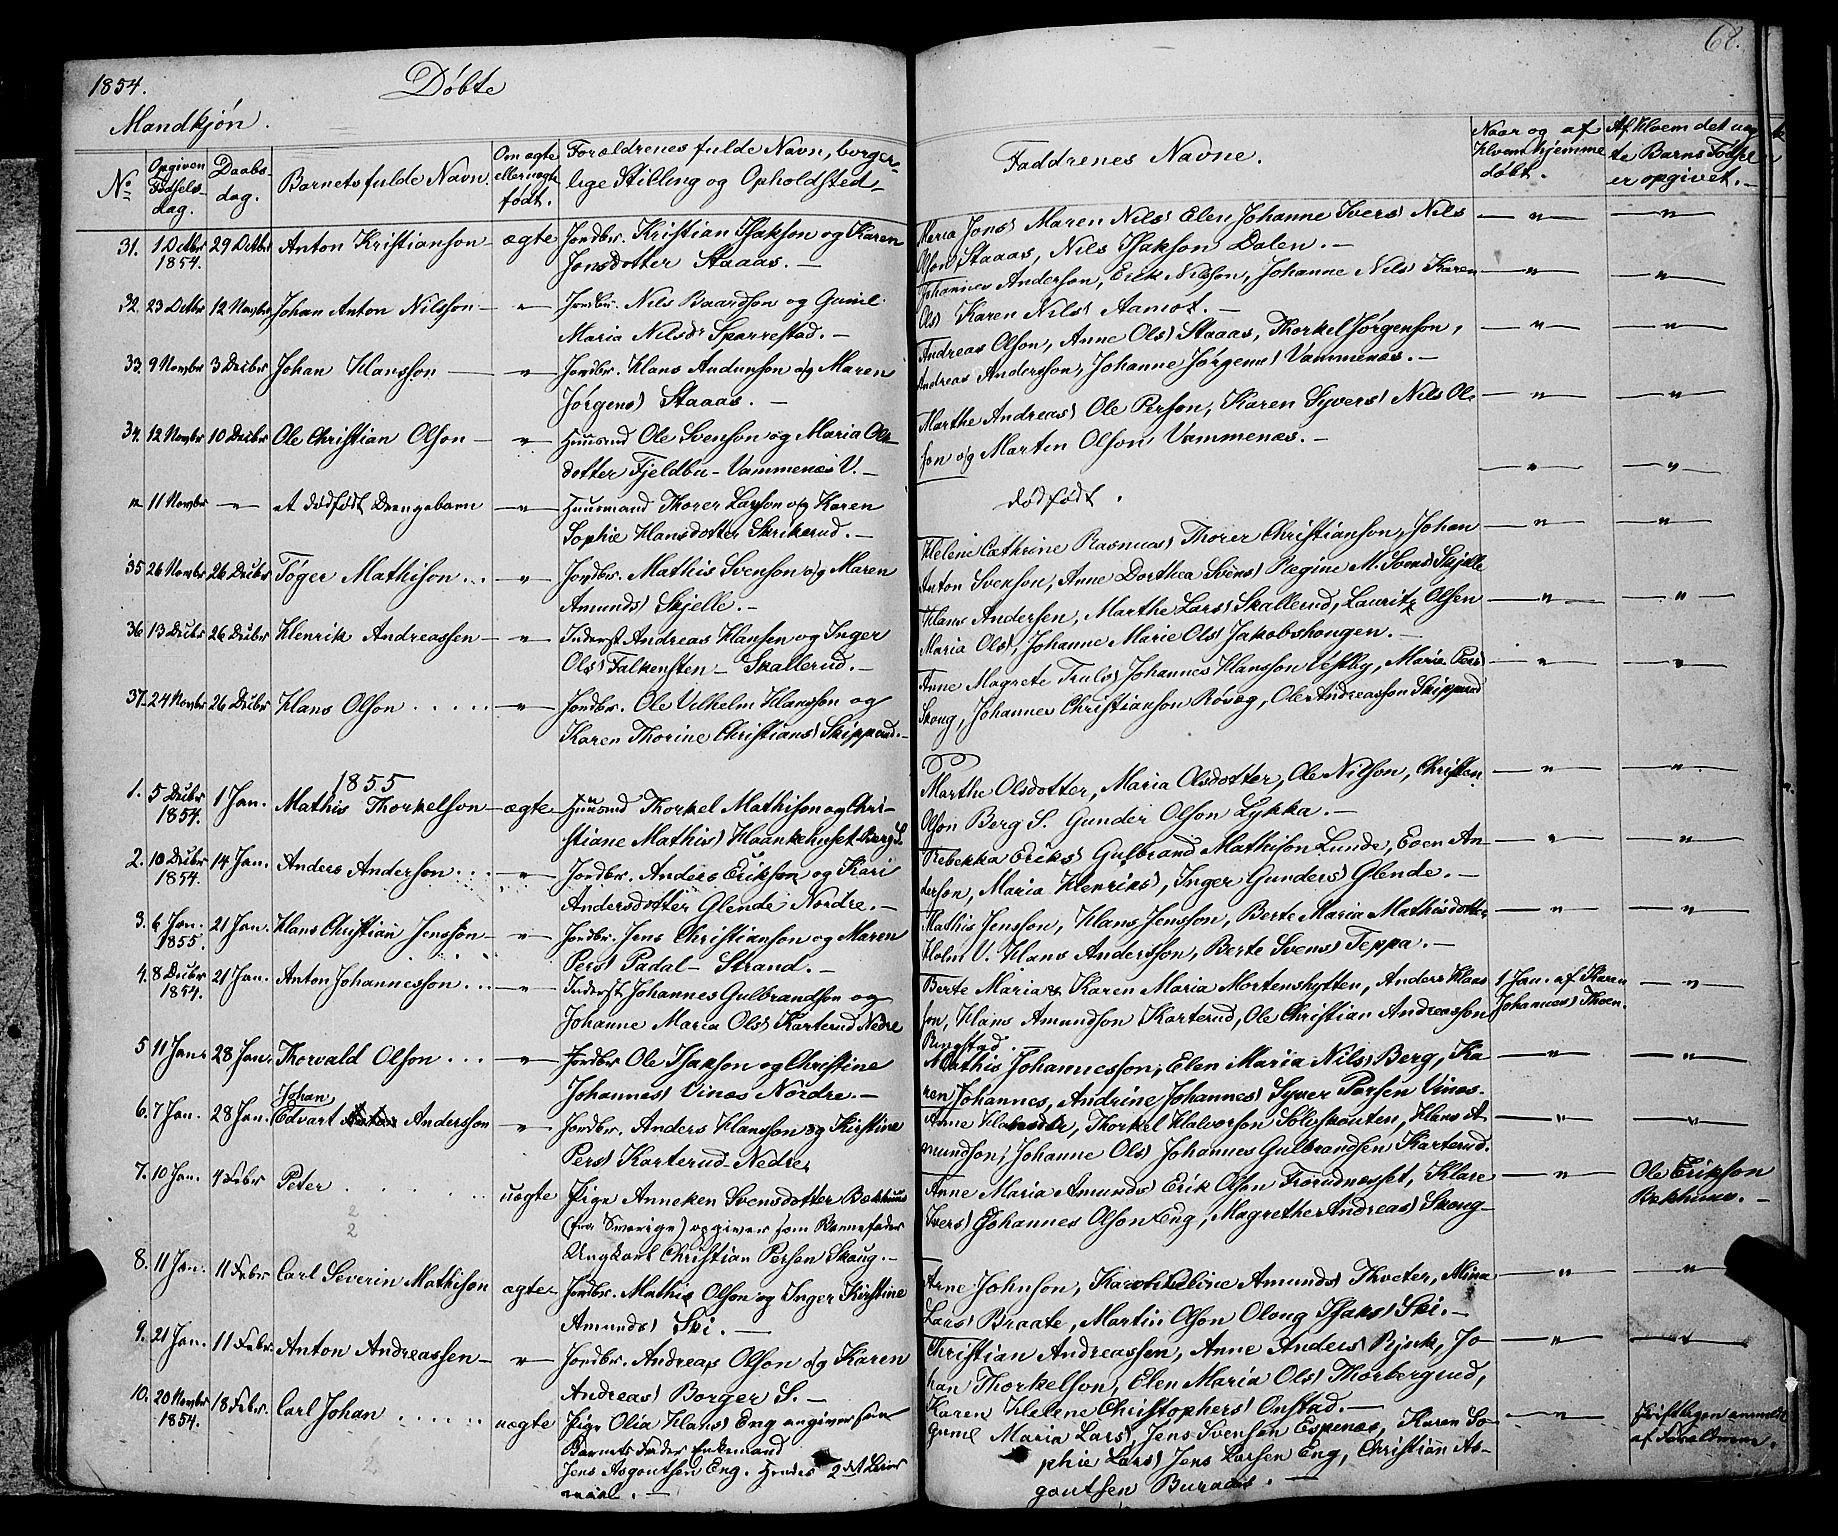 1854.
Döbte
68.
Mandkjön.
No
Opgiven Födsels-dag.
Daabs-dag.
Barnets fulde Navn.
Om ægte eller uægte födt.
Forældrenes fulde Navn, borger-
lige Stilling og Opholdsted.
Faddrenes Navne.
Naar og af Hvem hjemme döbt.
Af Hvem det uægte Barns Födsel er opgivet.
31. 1 Octbr 1854. 29 Octbr Anton Kristianson ægte Jordbr. Kristian Isakson og Karen
Jonsdotter Staaas.
Maria Jons) Maren Nils) Elen Johanne Ivers) Nils
Olson Staaas, Nils Isakson Dalen.
32. 23 Octbr 12 Novbr Johan Anton Nilsson " Jordbr. Nils Baardson og Gunil
Maria Nilsdr Sparrestad.
Johannes Anderson, Erik Nilsson, Johanne Nils) Karen
Ols) Karen Nils) Aamot.
33. 9 Novbr 3 Decbr Johan Hansson " Jordbr. Hans Andunson og Maren
Jörgens) Staaas.
Andreas Olson, Anne Ols) Staaas, Thorkel Jörgenson,
Andreas Anderson, Johanne Jörgens) Vammenæs.
34. 12 Novbr 10 Decbr Ole Christian Olson " Huusmd Ole Svenson og Maria Ols-
dotter Fjeldbu - Vammenæs V.
Marthe Andreas) Ole Person, Karen Syvers) Nils Ol-
son og Marten Olson Vammenæs.
" 11 Novbr - et dödfödt Drengebarn " Huusmand Thorer Larsson og Karen
Sophie Hansdotter Skrikerud.
dödfödt.
35 26 Novbr 26 Decbr Töger Mathison " Jordbr. Mathis Svenson og Maren
Amunds) Skjelle.
Helene Cathrine Rasmus) Thorer Christianson, Johan
Anton Svenson, Anne Dorthea Svens) Regine M. Svens) Skjelle
36 13 Decbr 26 Decbr Henrik Andreassen " Inderst Andreas Hansen og Inger
Ols) Falkensten - Skallerud.
Hans Andersen, Marthe Lars) Skallerud, Lauritz Olsen
Maria Ols), Johanne Marie Ols) Jakobshougen.
37 24 Novbr 26 Decbr Hans Olson " Jordbr. Ole Vilhelm Hansson og
Karen Thorine Christians) Skipperud.
Anne Magrete Truls) Johannes Hansson Vestby, Marie Pers)
Skoug, Johannes Christianson Rövæg, Ole Andreasson Skipperud
1855
1. 5 Decbr 1854. 1 Jan. Mathis Thorkelson ægte Huusmd Thorkel Mathison og Chri-
stiane Mathis) Haankehuset Berg S.
Marthe Olsdotter, Maria Olsdotter, Ole Nilson, Christian
Olson Berg S. Gunder Olson Lykka.
2. 10 Decbr 1854. 14 Jan. Anders Anderson " Jordbr. Anders Erikson og Kari
Andersdotter Glende Nordre.
Rebekka Eriks) Gulbrand Mathison Lunde, Even An-
derson, Maria Henriks), Inger Gunders) Glende.
3. 6 Jan. 1855. 21 Jan. Hans Christian Jensson " Jordbr. Jens Christianson og Maren
Pers) Padal - Strand.
Mathis Jensson, Hans Jensson, Berte Maria Mathisdotter
Holm V. Hans Andersson, Berte Svens) Teppa.
4. 8 Decbr 1854. 21 Jan. Anton Johannesson " Inderst Johannes Gulbrandson og
Johanne Maria Ols) Karterud Nedre
Berte Maria & Karen Maria Mortenshytten, Anders Hans
son, Hans Amundson Karterud, Ole Christian Andreasson
Ringstad.
1 Jan. af Karen Johannes) Thoen.
5 11 Jan. 28 Jan. Thorvald Olson " Jordbr Ole Isakson og Christine
Johannes) Vinæs Nordre
Mathis Johannesson, Elen Maria Nils) Berg, Ka-
ren Johannes, Andrine Johannes) Syver Persen Vinæs.
6. 7 Jan. 28 Jan. Edvart Johan Andersson " Jordbr. Anders Hansson og Kirstine
Pers) Karterud Nedre
Anne, Thorkel Halvorson Soleskouten, Hans A-
mundson, Johanne Ols) Johannes Gulbrandsen Karterud.
7. 10 Jan. 4 Febr Peter uægte Pige Anneken Svensdotter Bækhuus
(fra Sverige) opgiver som Barnefader
Ungkarl Christian Persen Skoug.
Anne Maria Amunds) Erik Olsen Trorudnesset, Klare
Ivers) Johannes Olson Eng, Magrethe Andreas) Skoug
Ole Erikson Bækhuus.
8. 11 Jan. 11 Febr Carl Severin Mathison ægte Jordbr. Mathis Olson og Inger Kirstine
Amunds) Ski.
Arne Johnson, Amunds) Thveter, Mina
Lars) Braate, Martin Olson Oloug Isaks) Ski.
9. 21 Jan. 11 Febr. Anton Andreassen " Jordbr. Andreas Olson og Karen
Andreas) Borger S.
Christian Andreassen, Anne Anders) Bjerk, Jo-
han Thorkelson, Elen Maria Ols) Thorbergrud,
Karen Helene Christophers) Onstad.
10. 20 Novbr 1854. 18 Febr. Carl Johan uægte Pige Olia Hans) Eng angiver som
Barnets Fader Enkemand
Jens Asgoutsen Eng. Hendes 2det Leier
maal.
Gunil Maria Lars) Jens Svenson Espenæs, Karen So-
phie Lars) Jens Larsen Eng, Christian As-
goutsen Buraas.
Skriftligen anmeldt af Forældrene.